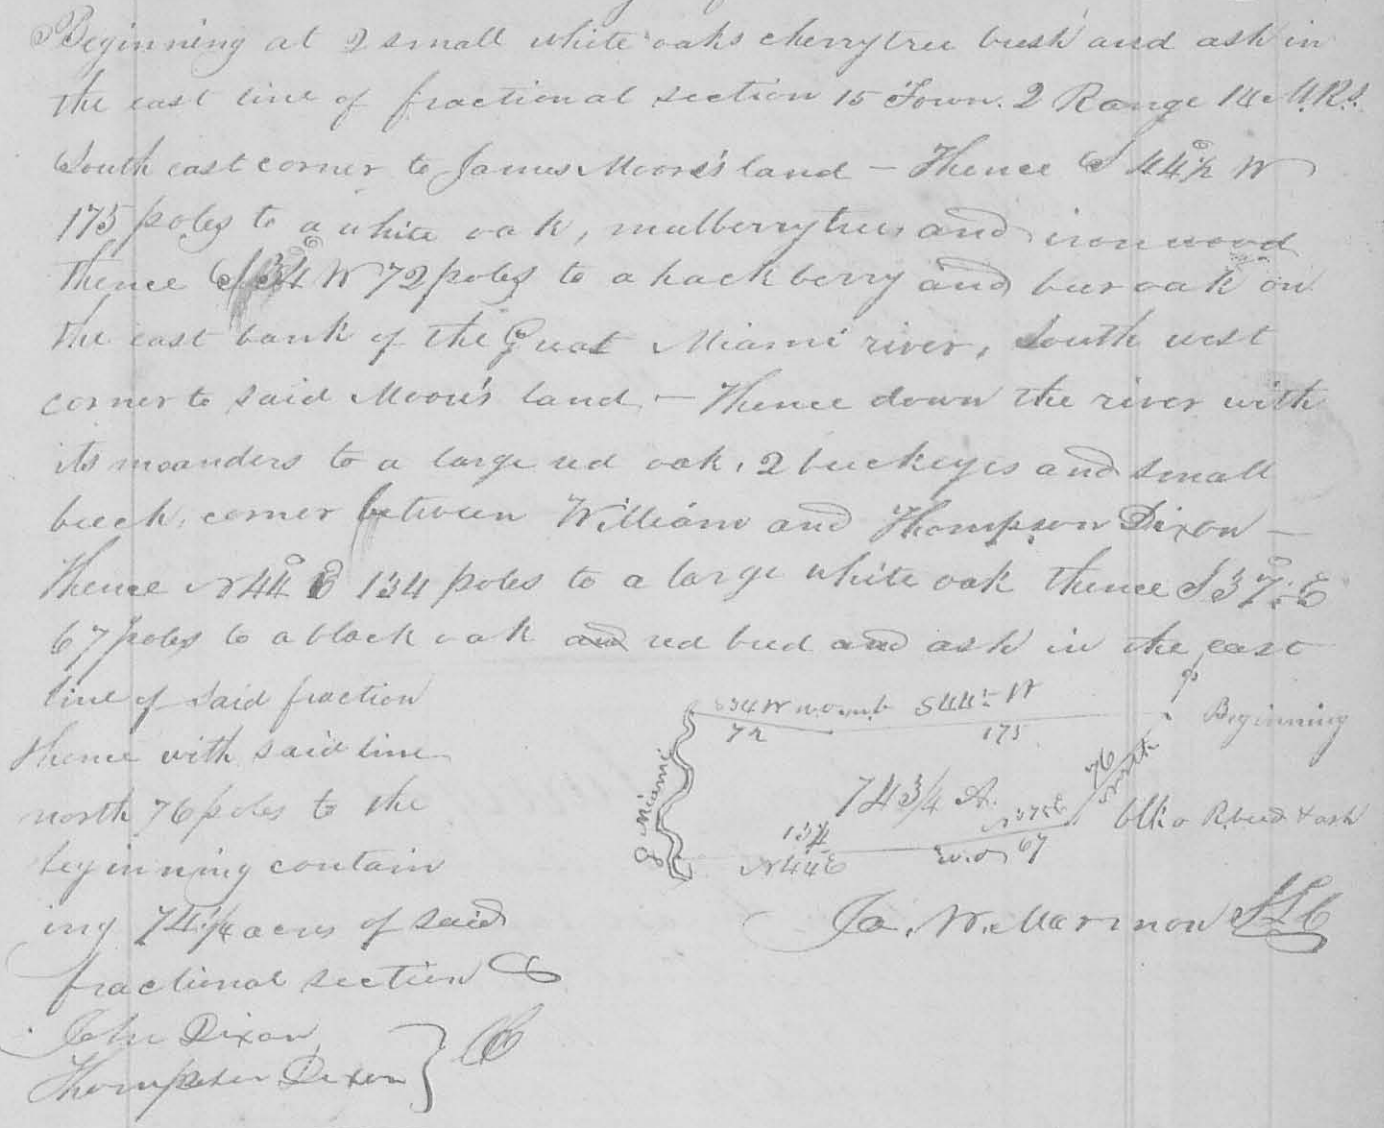 Beginning at 2 small white oaks cherrytree bush and ash in
the east line of fractional section 15 Town. 2 Range 14 M.R.S.
South east corner to James Moore's land – Thence S 44½° W
175 poles to a white oak, mulberrytrees and ironwood
thence S 34° W 72 poles to a hackberry and bur oak on
the east bank of the Great Miami river, South west
corner to said Moore's land – Thence down the river with
its meanders to a large red oak, 2 buckeyes and small
beech, corner between William and Thompson Dixon –
Thence N 44° E 134 poles to a large white oak thence S 37° E
67 poles to a black oak and red bud and ash in the east
line of said fraction
thence with said line
north 76 poles to the
beginning contain
ing 74¾ acres of said
fractional section
John Dixon
Thompson Dixon } CC
S34W S44½ W
72 175
Beginning
G Miami
76
North
74 3/4 A.
134
N44E
W.O 67
blk o R.bud & ash
Ja. W. Marmon S L C